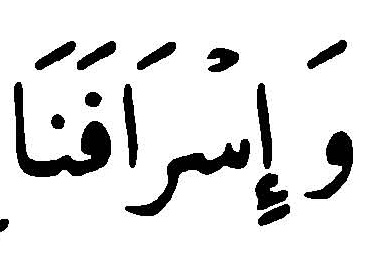 وَإِسْرَافَنَا